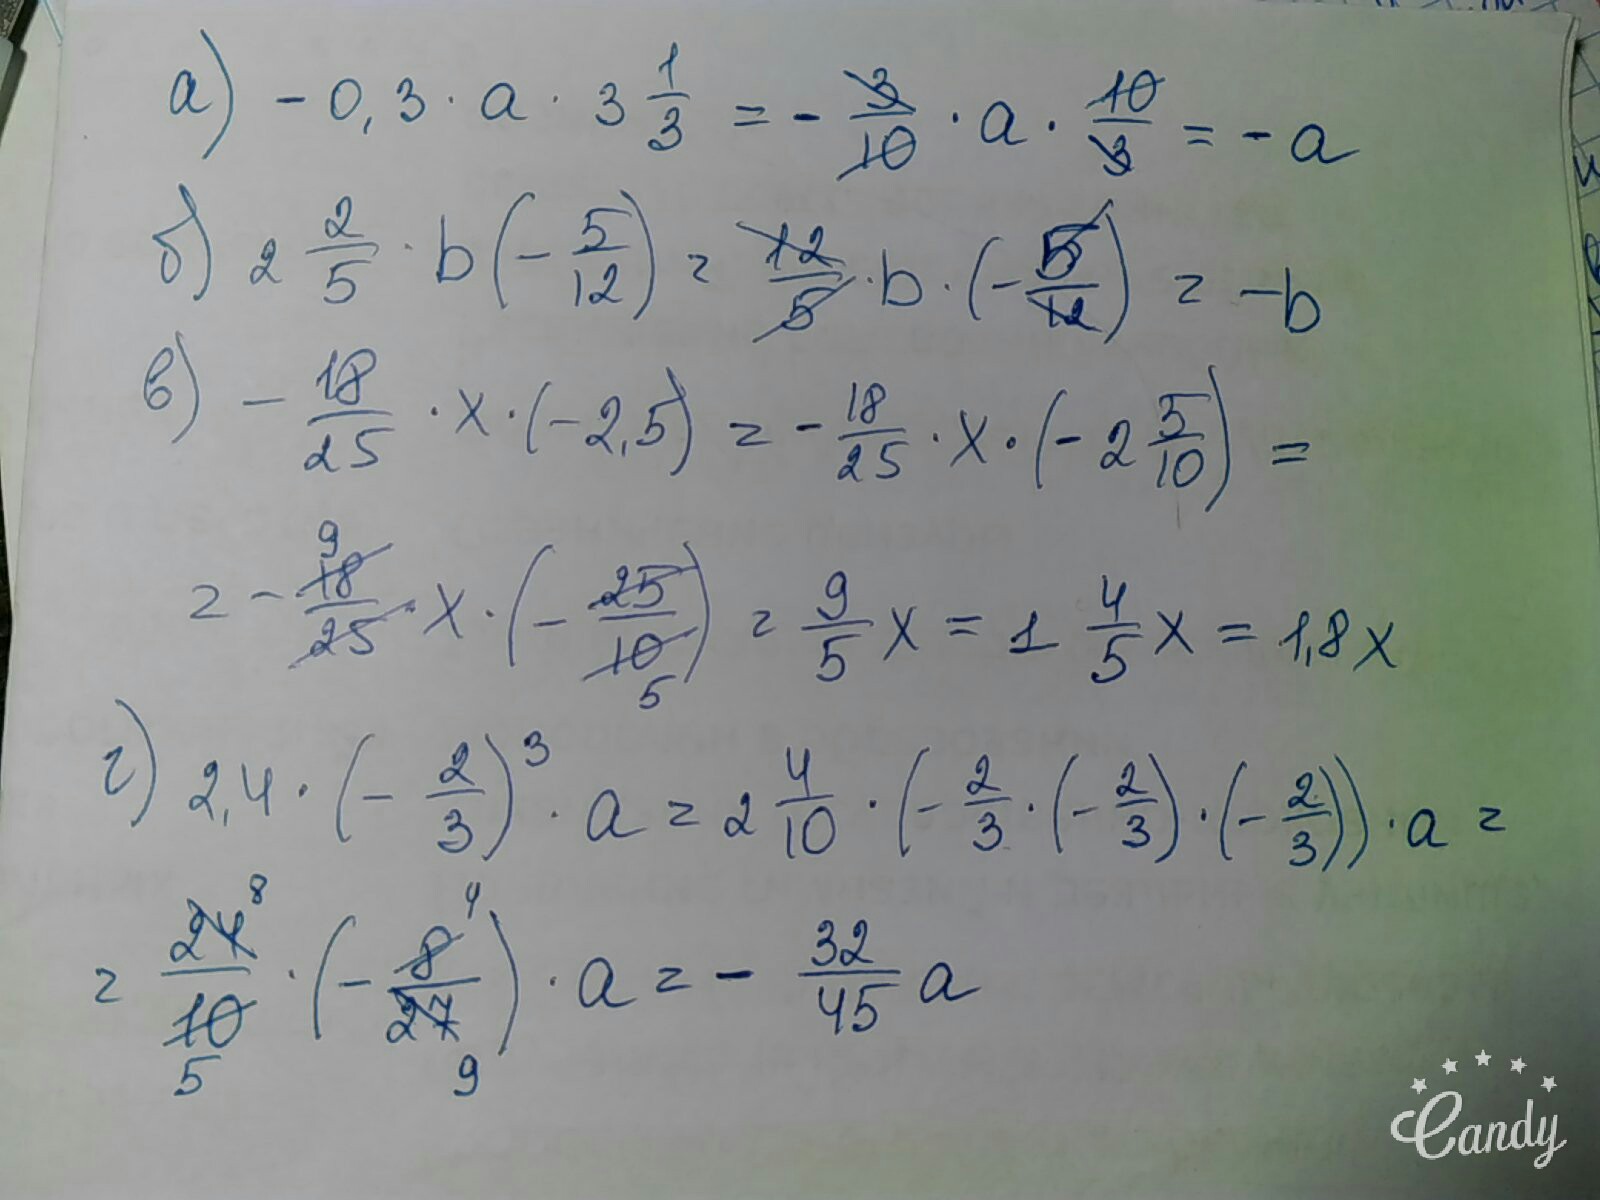 а) - 0,3 · a · 3 1/3 = - 3/10 · a · 10/3 = - a
б) 2 2/5 · b (- 5/12) = 12/5 · b · (- 5/12) = - b
в) - 18/25 · x · (- 2,5) = - 18/25 · x · (- 2 5/10) =
= - 18/25 x · (- 25/10) = 9/5 x = 1 4/5 x = 1,8 x
9
5
г) 2,4 · (- 2/3)³ · a = 2 4/10 · (- 2/3 · (- 2/3) · (- 2/3)) · a =
= 24/10 · (- 8/27) · a = - 32/45 a
8 4
5 9
Candy